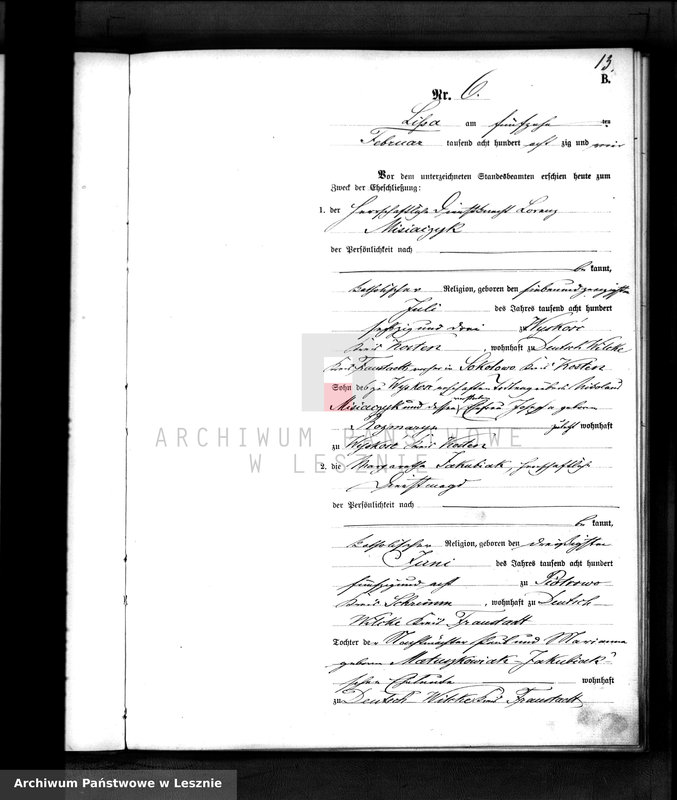 13.
B.
Nr. 6.
Lissa am fünfzehn ten
Februar tausend acht hundert acht zig und vier
Vor dem unterzeichneten Standesbeamten erschien heute zum
Zweck der Eheschließung:
1. der herrschaftliche Dienstknecht Lorenz
Misiaczyk
der Persönlichkeit nach
be kannt,
katholischer Religion, geboren den siebenundzwanzigsten
Juli des Jahres tausend acht hundert
sechzig und drei zu Wyskoć
Kreis Kosten, wohnhaft zu Deutsch Wilke
Kreis Fraustadt, in Sokolowo Kreis Kosten
Sohn des zu Wyskoć verstorbenen
Misiaczyk und dessen Ehefrau Josepha geborene
Rozmaryn wohnhaft
zu Wyskoć Kreis Kosten
2. die Margaretha Jakubiak, herrschaftliche
Dienstmagd
der Persönlichkeit nach
be kannt,
katholischer Religion, geboren den dreißigsten
Juni des Jahres tausend acht hundert
fünfzig und acht zu Piotrowo
Kreis Schrimm, wohnhaft zu Deutsch
Wilcke Kreis Fraustadt
Tochter der Paul und Marianna
geborene Matuszkowiak Jakubiak-
schen Eheleute wohnhaft
zu Deutsch Wilcke Kreis Fraustadt
ARCHIWUM PAŃSTWOWE
W LESZNIE
Archiwum Państwowe w Lesznie